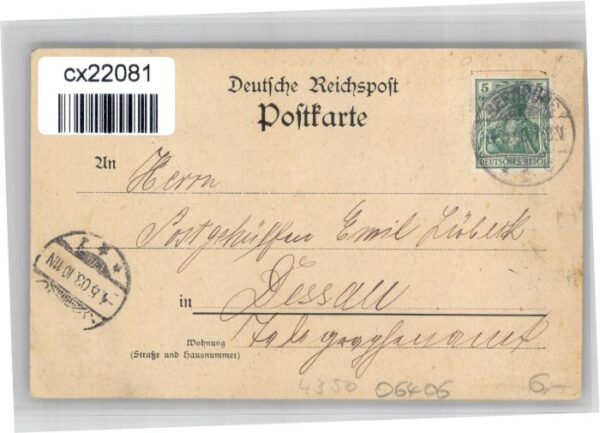 cx22081
Deutsche Reichspost
Postkarte
5
DEUTSCHES REICH
An
Herrn
Postgehülfen Emil Lübeck
in Dessau
Wohnung
(Straße und Hausnummer)
Telegraphenamt
1.6.03.10-11N
4350 06406 6,-